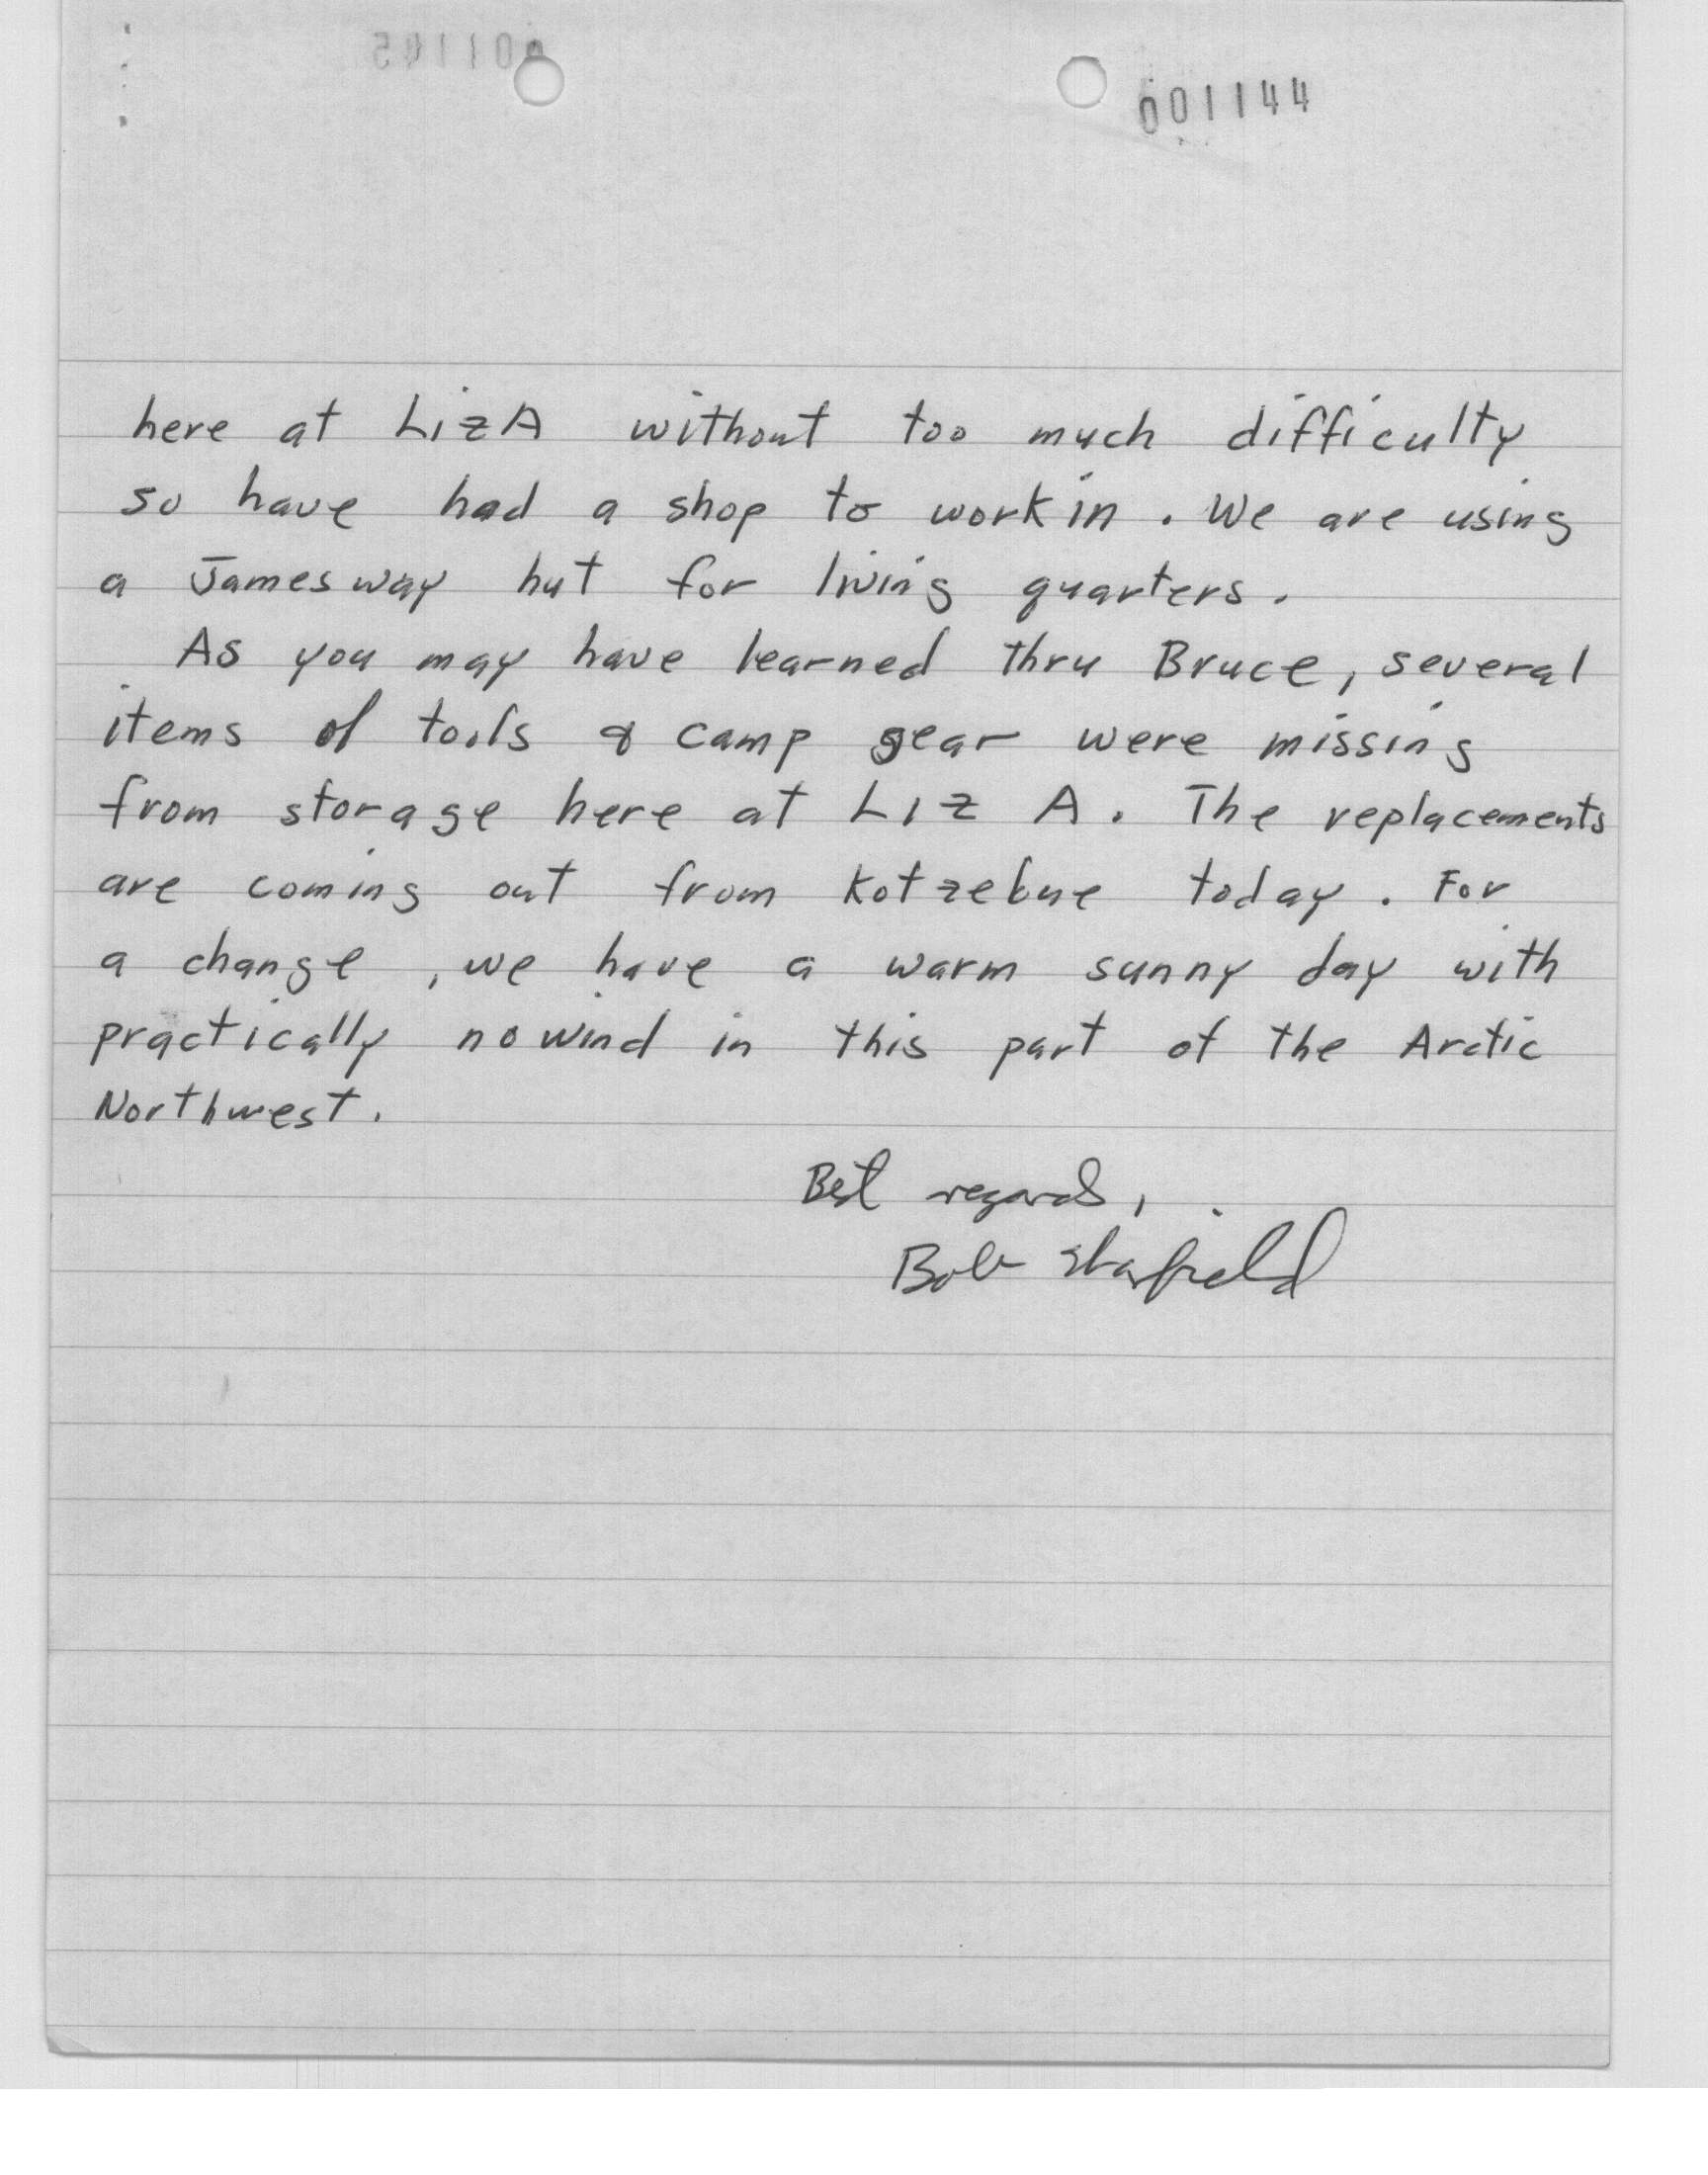 001144
here at Liz A without too much difficulty
so have had a shop to work in. We are using
a Jamesway hut for living quarters.
As you may have learned thru Bruce, several
items of tools & camp gear were missing
from storage here at LIZ A. The replacements
are coming out from Kotzebue today. For
a change, we have a warm sunny day with
practically no wind in this part of the Arctic
Northwest.
Best regards,
Bob